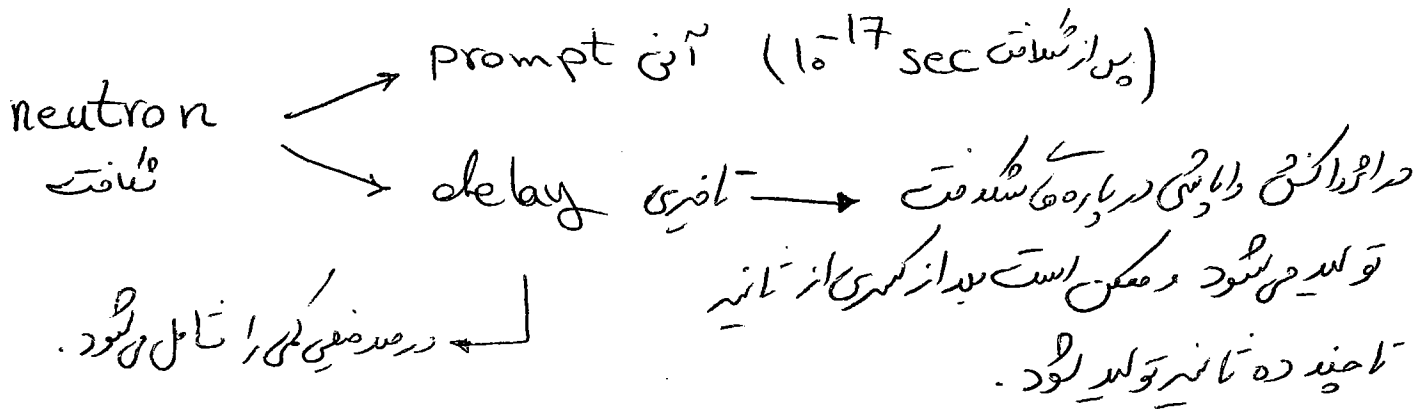 prompt آنی (10⁻¹⁷ sec پس از شکافت)
neutron
شکافت
delay تاخیری → در اثر واکنش واپاشی در پاره‌های شکافت
تولید می‌شود و ممکن است بعد از کسری از ثانیه
تا چند ده ثانیه تولید شود.
درصد خیلی کمی را شامل می‌شود.